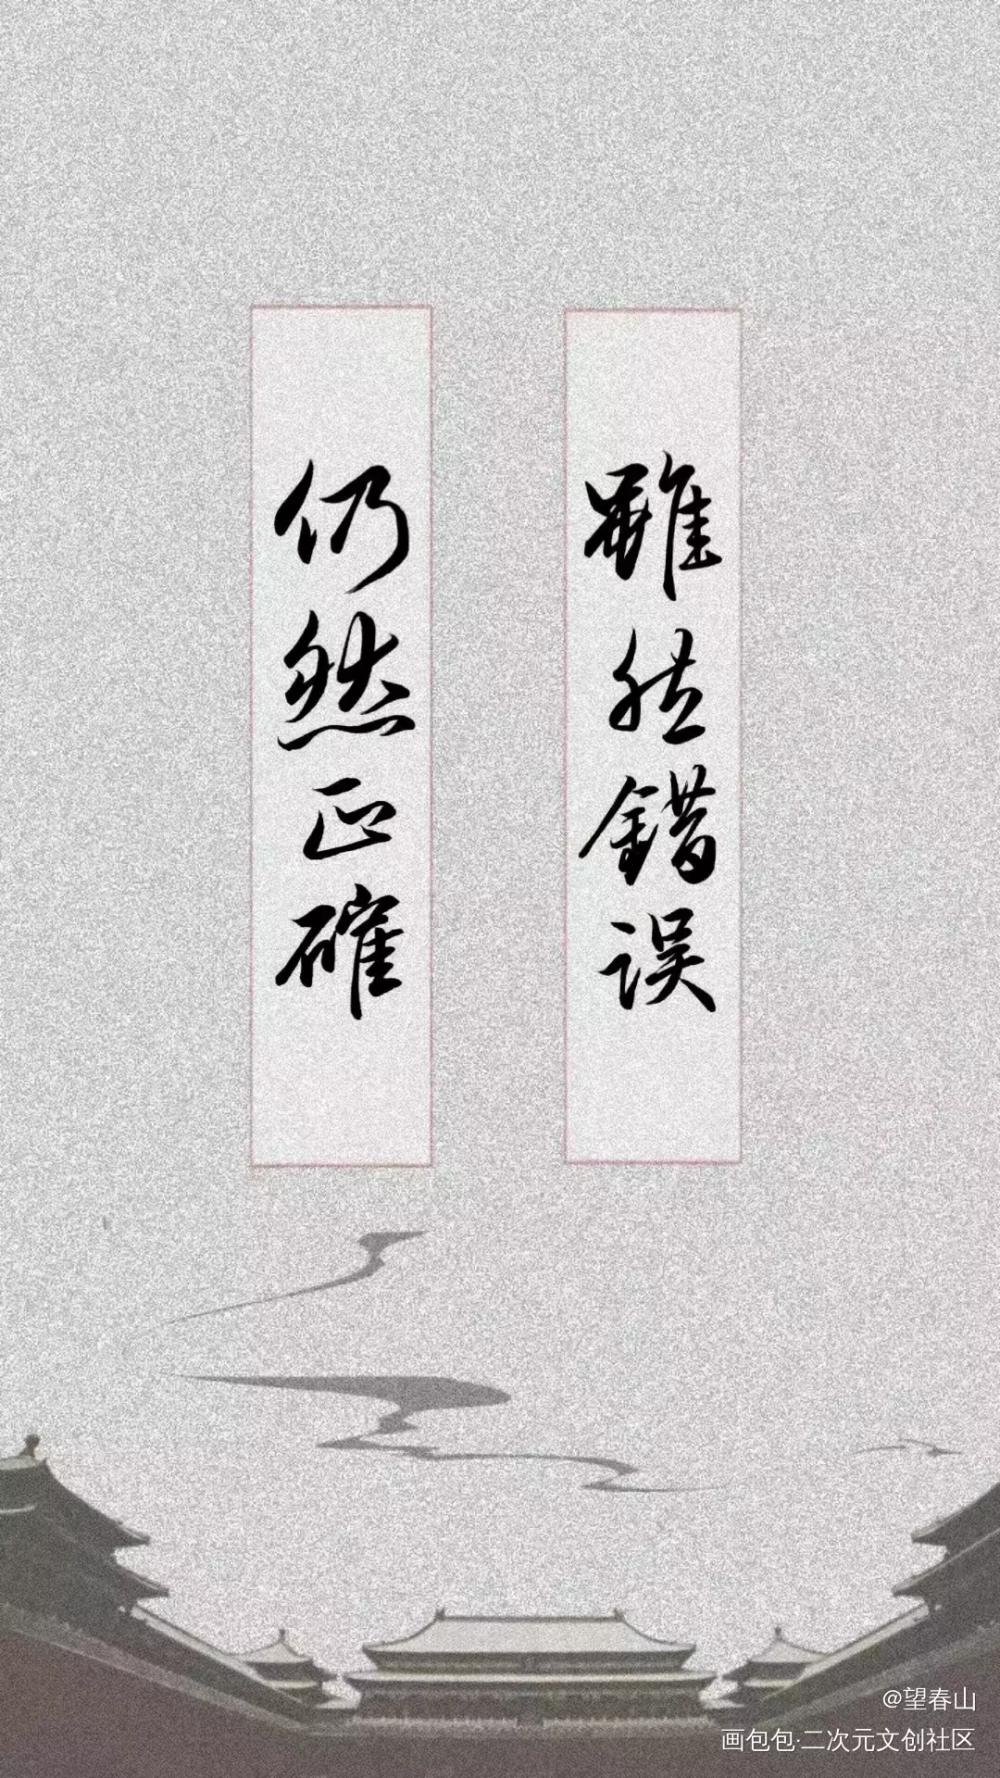 雖然錯誤
仍然正確
@望春山
画包包·二次元文创社区